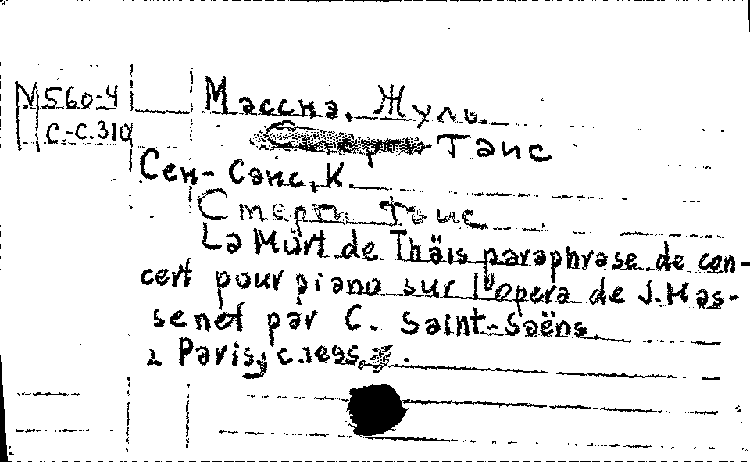 М560-4 Масснэ, Жуль.
С-С.310 Таис
Сен-Санс, К.
Смерть Таис
La Mürt de Thäis paraphrase de con-
cert pour piano sur l'opera de J. Mas-
senet par C. Saint-Saëns.
Paris, c.1895.